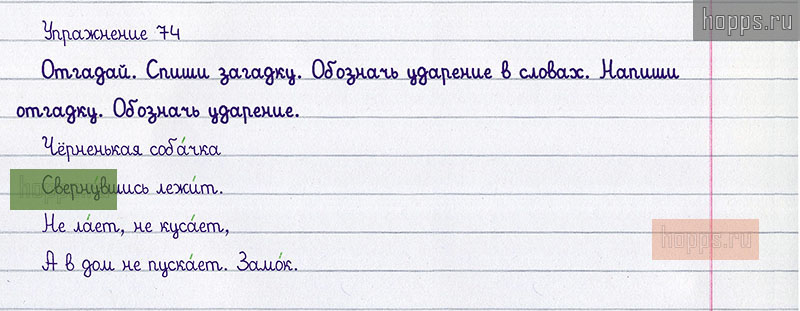 hopps.ru
Упражнение 74
Отгадай. Спиши загадку. Обозначь ударение в словах. Напиши
отгадку. Обозначь ударение.
Чёрненькая соба́чка
hopps.ru
Сверну́вшись лежи́т.
Не ла́ет, не куса́ет,
hopps.ru
А в дом не пуска́ет. Замо́к.